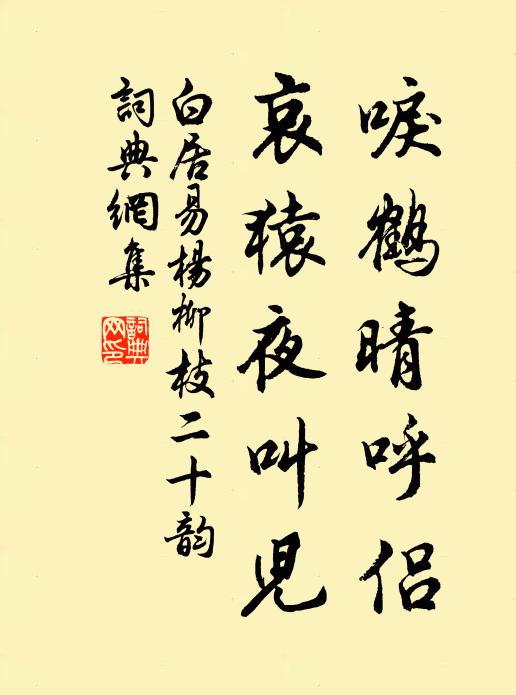 唳鶴晴呼侶
哀猿夜叫兒
白居易楊柳枝二十韵
詞典網集
詞典網印